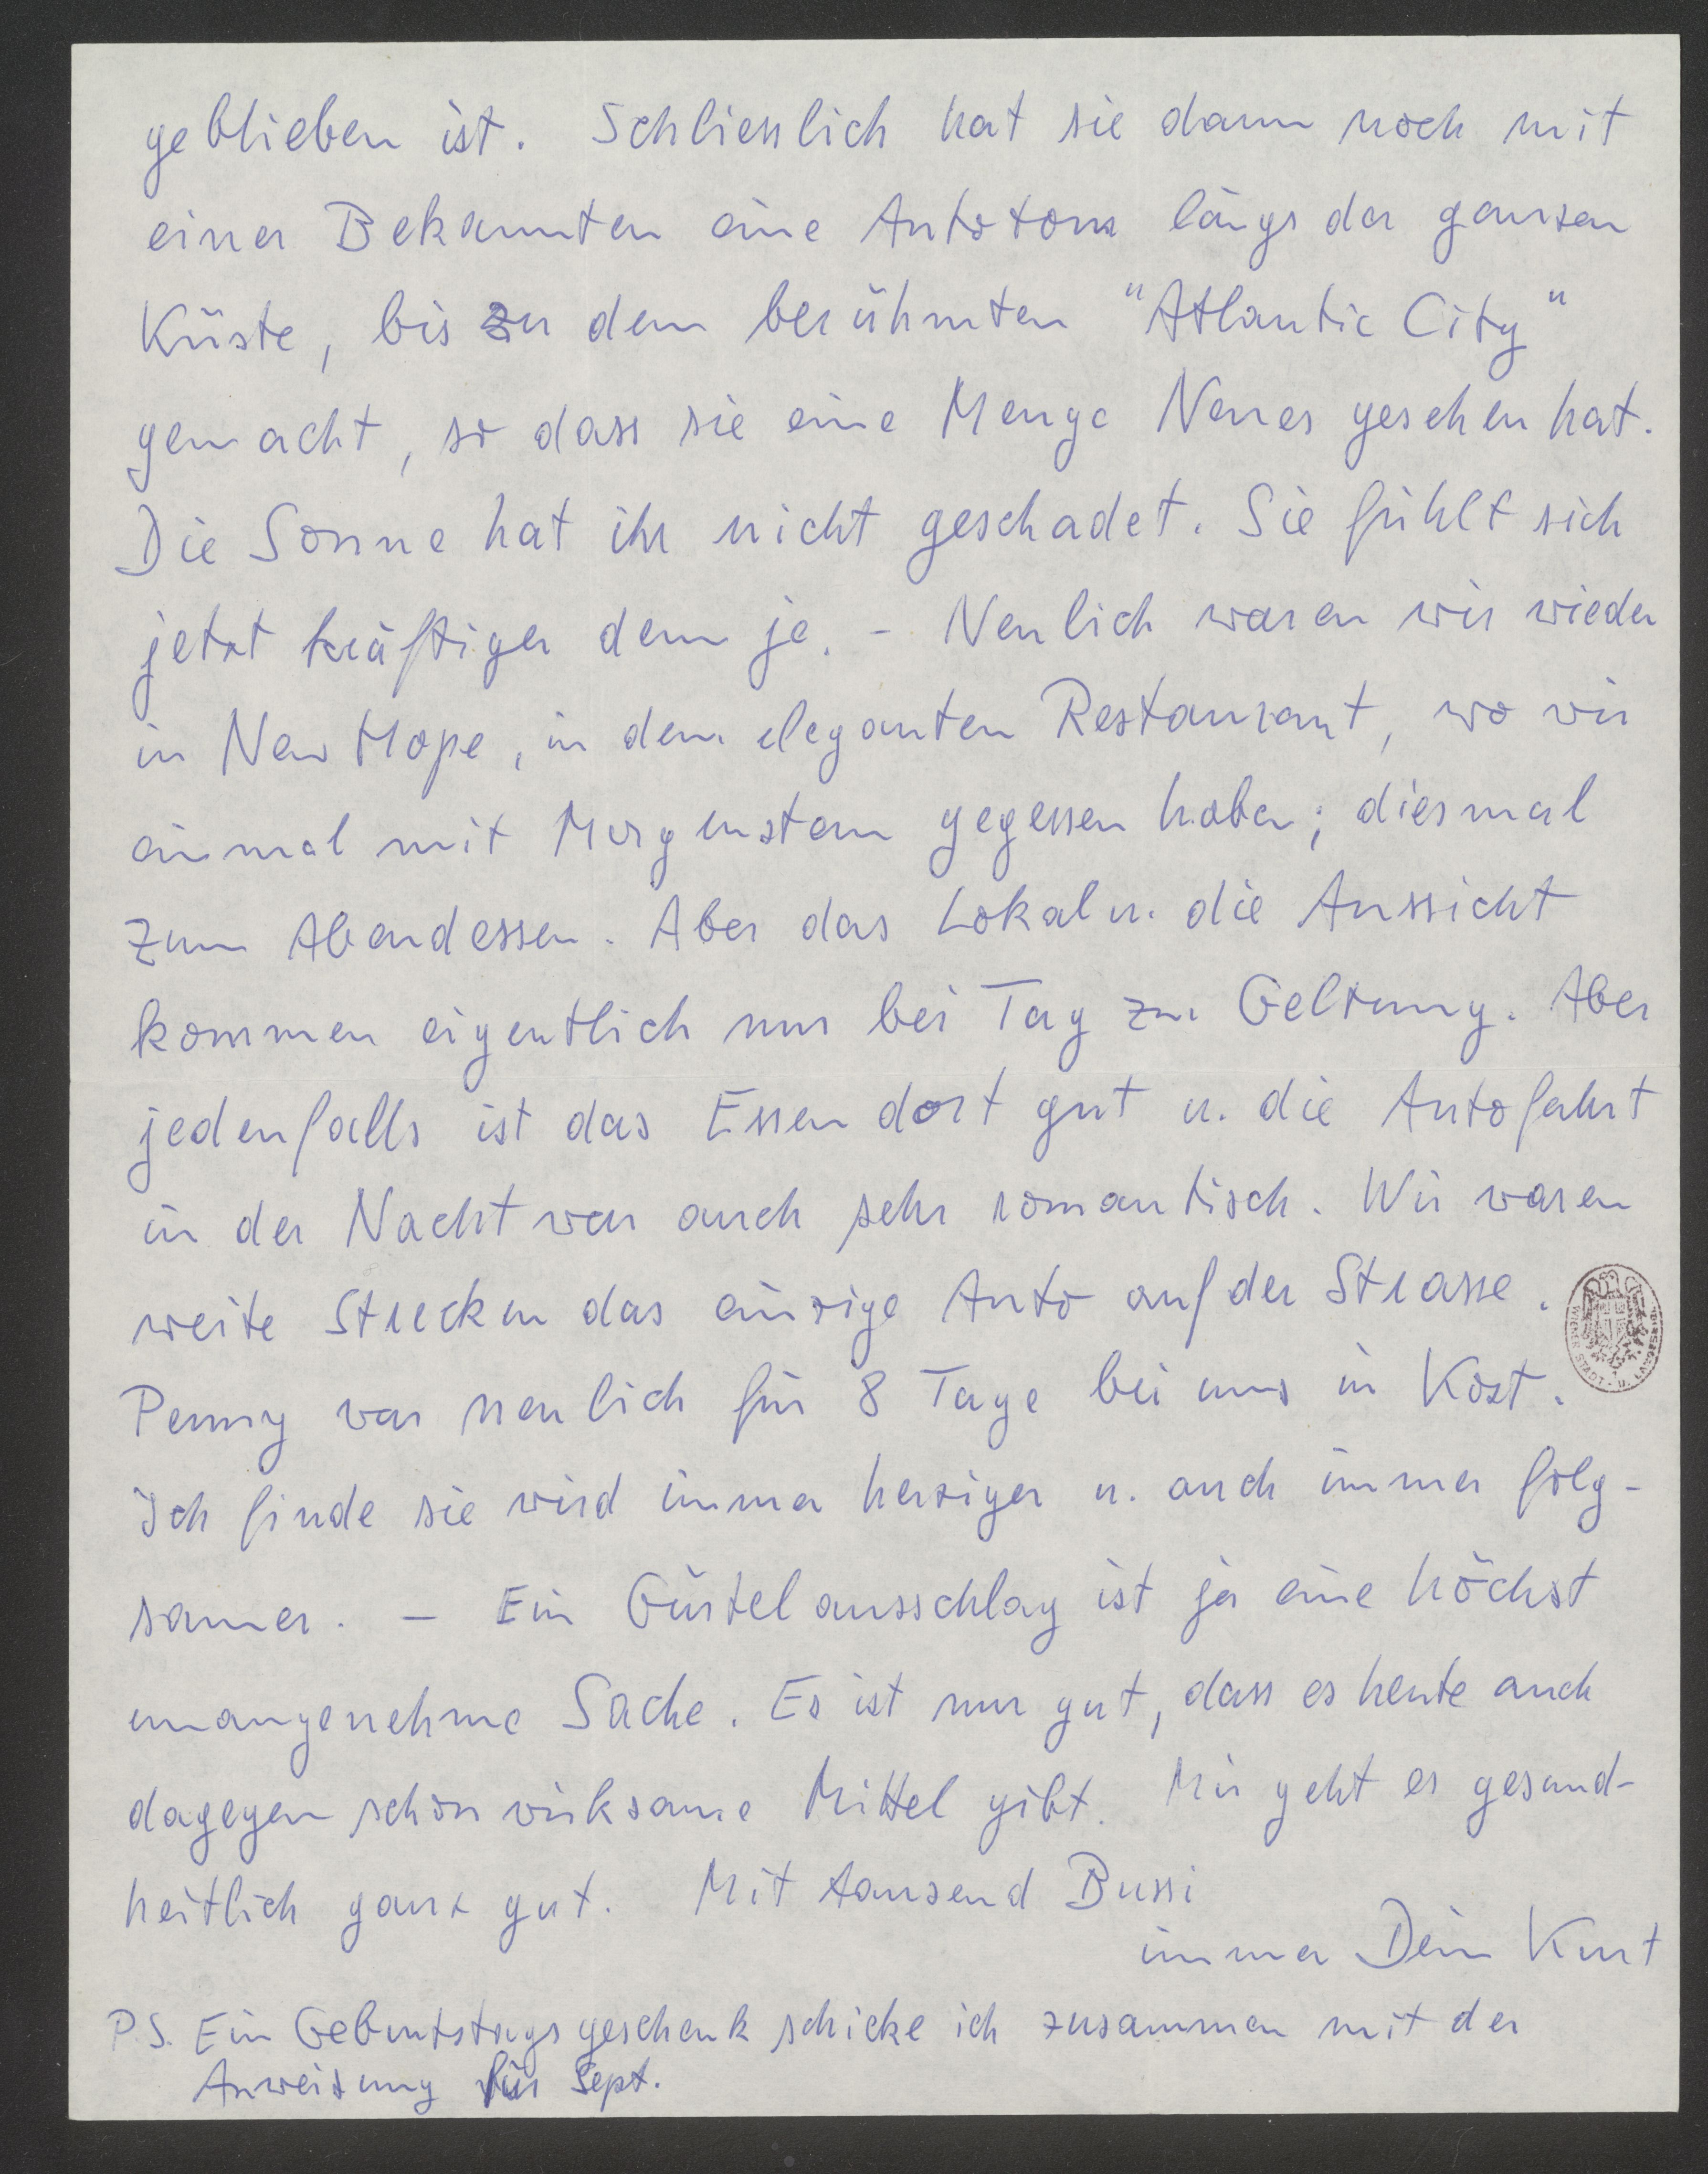 geblieben ist. Schliesslich hat sie dann noch mit
einer Bekannten eine Autotour längs der ganzen
Küste, bis zu dem berühmten "Atlantic City"
gemacht, so dass sie eine Menge Neues gesehen hat.
Die Sonne hat ihr nicht geschadet. Sie fühlt sich
jetzt kräftiger denn je. - Neulich waren wir wieder
in New Hope, in dem eleganten Restaurant, wo wir
einmal mit Morgenstern gegessen haben; diesmal
zum Abendessen. Aber das Lokal u. die Aussicht
kommen eigentlich nur bei Tag zur Geltung. Aber
jedenfalls ist das Essen dort gut u. die Autofahrt
in der Nacht war auch sehr romantisch. Wir waren
weite Strecken das einzige Auto auf der Strasse.
Penny war neulich für 8 Tage bei uns in Kost.
Ich finde sie wird immer herziger u. auch immer folg-
samer. - Ein Gürtelausschlag ist ja eine höchst
unangenehme Sache. Es ist nur gut, dass es heute auch
dagegen schon wirksame Mittel gibt. Mir geht es gesund-
heitlich ganz gut. Mit tausend Bussi
immer Dein Kurt
P.S. Ein Geburtstagsgeschenk schicke ich zusammen mit der
Anweisung für Sept.
WIENER STADT- U. LANDESBIBL.